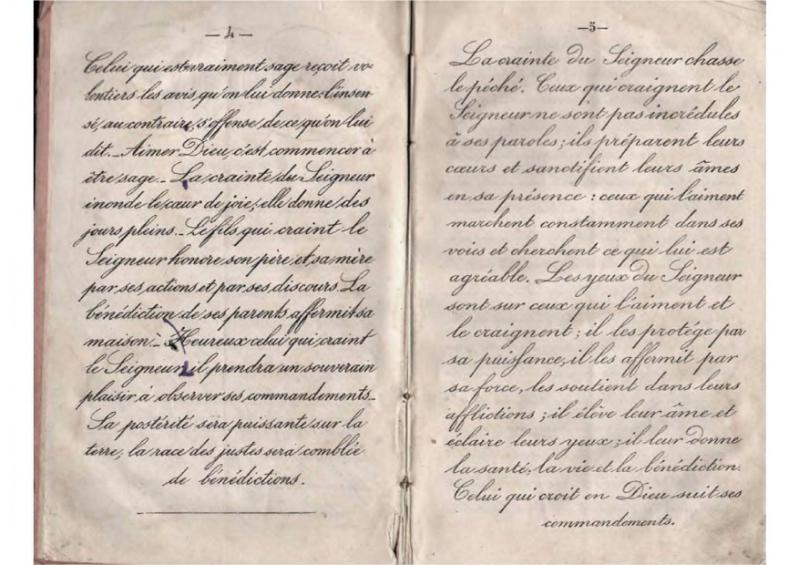 — 4 —
Celui qui est vraiment sage reçoit vo-
lontiers les avis qu'on lui donne: l'insen-
sé, au contraire, s'offense de ce qu'on lui
dit. _ Aimer Dieu, c'est commencer à
être sage. _ La crainte du Seigneur
inonde le cœur de joie; elle donne des
jours pleins. _ Le fils qui craint le
Seigneur honore son père et sa mère
par ses actions et par ses discours. La
bénédiction de ses parents affermit sa
maison. _ Heureux celui qui craint
le Seigneur; il prendra un souverain
plaisir à observer ses commandements. _
Sa postérité sera puissante sur la
terre, la race des justes sera comblée
de bénédictions.
— 5 —
La crainte du Seigneur chasse
le péché. Ceux qui craignent le
Seigneur ne sont pas incrédules
à ses paroles; ils préparent leurs
cœurs et sanctifient leurs âmes
en sa présence : ceux qui l'aiment
marchent constamment dans ses
voies et cherchent ce qui lui est
agréable. Les yeux du Seigneur
sont sur ceux qui l'aiment et
le craignent; il les protége par
sa puissance, il les affermit par
sa force, les soutient dans leurs
afflictions; il élève leur âme et
éclaire leurs yeux; il leur donne
la santé, la vie et la bénédiction.
Celui qui croit en Dieu suit ses
commandements.